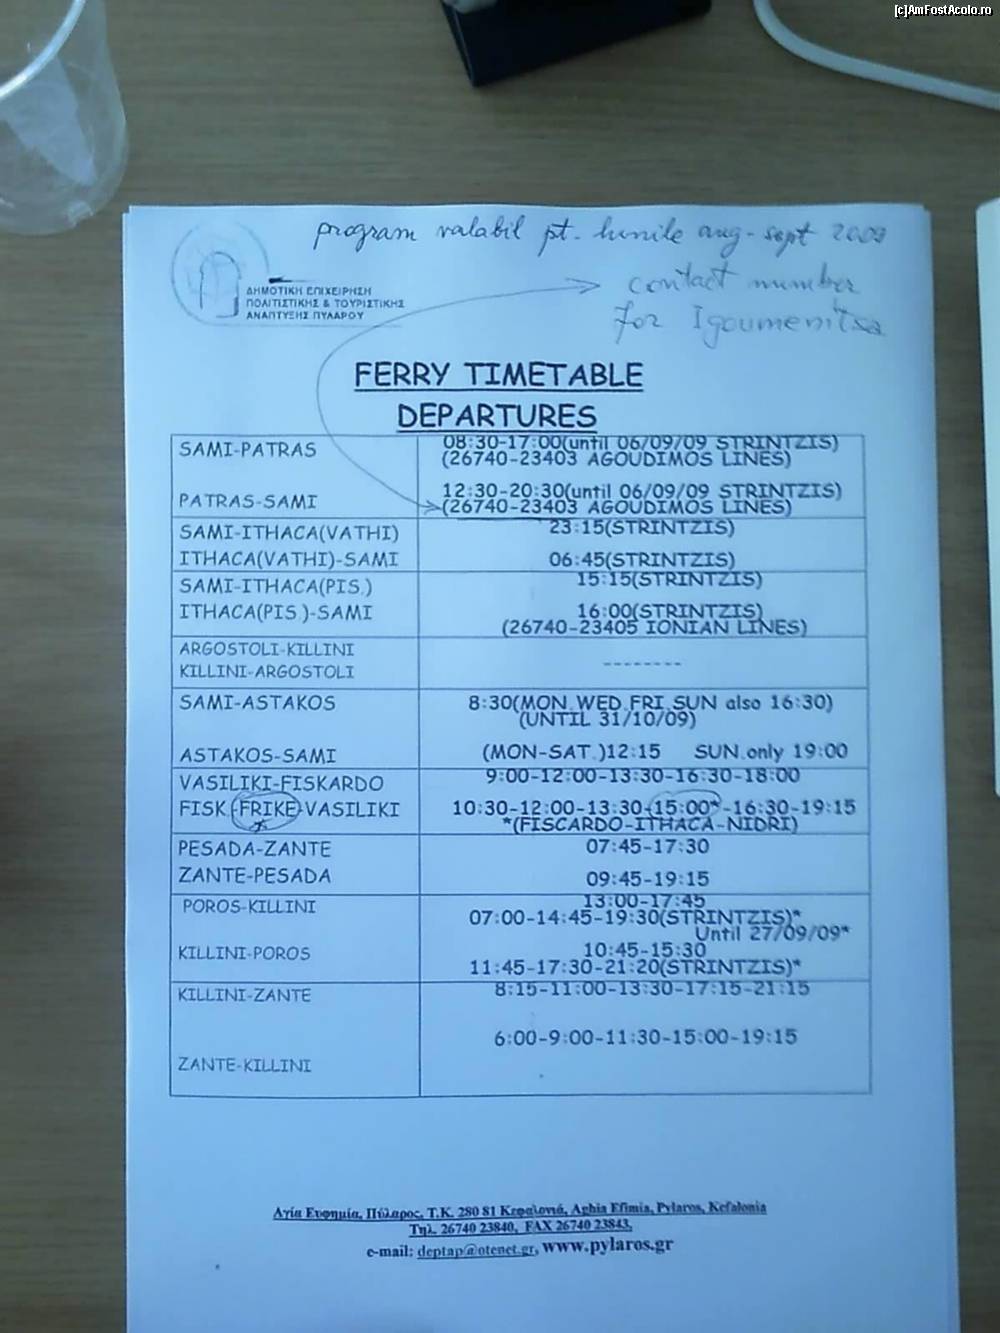 [c]AmFostAcolo.ro
program valabil pt. lunile aug-sept 2009
contact number
for Igoumenitsa
ΔΗΜΟΤΙΚΗ ΕΠΙΧΕΙΡΗΣΗ
ΠΟΛΙΤΙΣΤΙΚΗΣ & ΤΟΥΡΙΣΤΙΚΗΣ
ΑΝΑΠΤΥΞΗΣ ΠΥΛΑΡΟΥ
FERRY TIMETABLE
DEPARTURES
SAMI-PATRAS 08:30-17:00(until 06/09/09 STRINTZIS)
(26740-23403 AGOUDIMOS LINES)
PATRAS-SAMI 12:30-20:30(until 06/09/09 STRINTZIS)
(26740-23403 AGOUDIMOS LINES)
SAMI-ITHACA(VATHI) 23:15(STRINTZIS)
ITHACA(VATHI)-SAMI 06:45(STRINTZIS)
SAMI-ITHACA(PIS.) 15:15(STRINTZIS)
ITHACA(PIS.)-SAMI 16:00(STRINTZIS)
(26740-23405 IONIAN LINES)
ARGOSTOLI-KILLINI
KILLINI-ARGOSTOLI --------
SAMI-ASTAKOS 8:30(MON.WED.FRI.SUN also 16:30)
(UNTIL 31/10/09)
ASTAKOS-SAMI (MON-SAT.)12:15 SUN.only 19:00
VASILIKI-FISKARDO 9:00-12:00-13:30-16:30-18:00
FISK-FRIKE-VASILIKI 10:30-12:00-13:30-15:00*-16:30-19:15
*(FISCARDO-ITHACA-NIDRI)
PESADA-ZANTE 07:45-17:30
ZANTE-PESADA 09:45-19:15
POROS-KILLINI 13:00-17:45
07:00-14:45-19:30(STRINTZIS)*
Until 27/09/09*
KILLINI-POROS 10:45-15:30
11:45-17:30-21:20(STRINTZIS)*
KILLINI-ZANTE 8:15-11:00-13:30-17:15-21:15
6:00-9:00-11:30-15:00-19:15
ZANTE-KILLINI
Αγία Ευφημία, Πύλαρος, Τ.Κ. 280 81 Κεφαλονιά, Aghia Efimia, Pylaros, Kefalonia
Τηλ. 26740 23840, FAX 26740 23843,
e-mail: deptap@otenet.gr, www.pylaros.gr